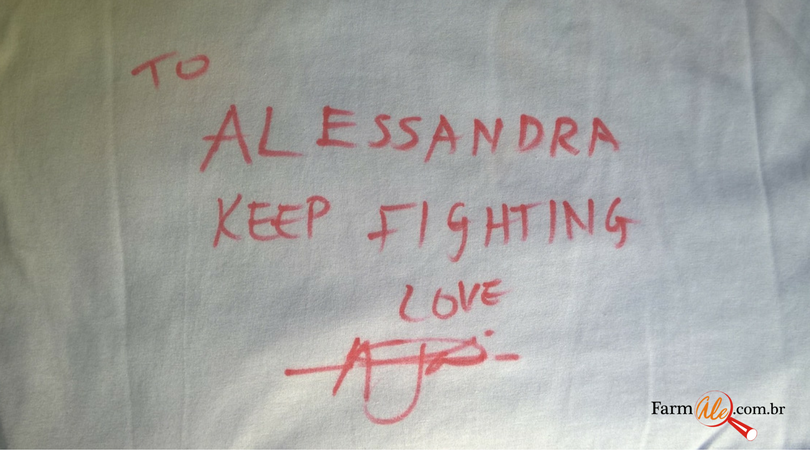 TO
ALESSANDRA
KEEP FIGHTING
LOVE
FarmAle.com.br